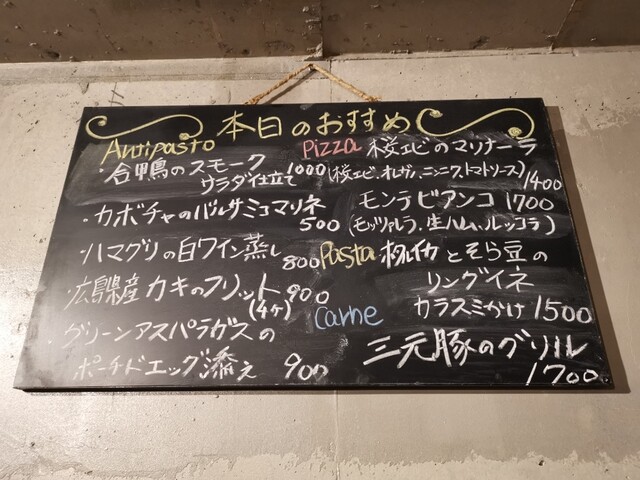 本日のおすすめ
Antipasto
・合鴨のスモーク
サラダ仕立て 1000
・カボチャのバルサミコマリネ
500
・ハマグリの白ワイン蒸し
800
・広島県産カキのフリット
(4ケ) 900
・グリーンアスパラガスの
ポーチドエッグ添え 900
Pizza 桜エビのマリナーラ
(桜エビ、オレガノ、ニンニク、トマトソース)
1400
モンテビアンコ 1700
(モッツァレラ、生ハム、ルッコラ)
Pasta ホタルイカとそら豆の
リングイネ
カラスミかけ 1500
Carne
三元豚のグリル
1700